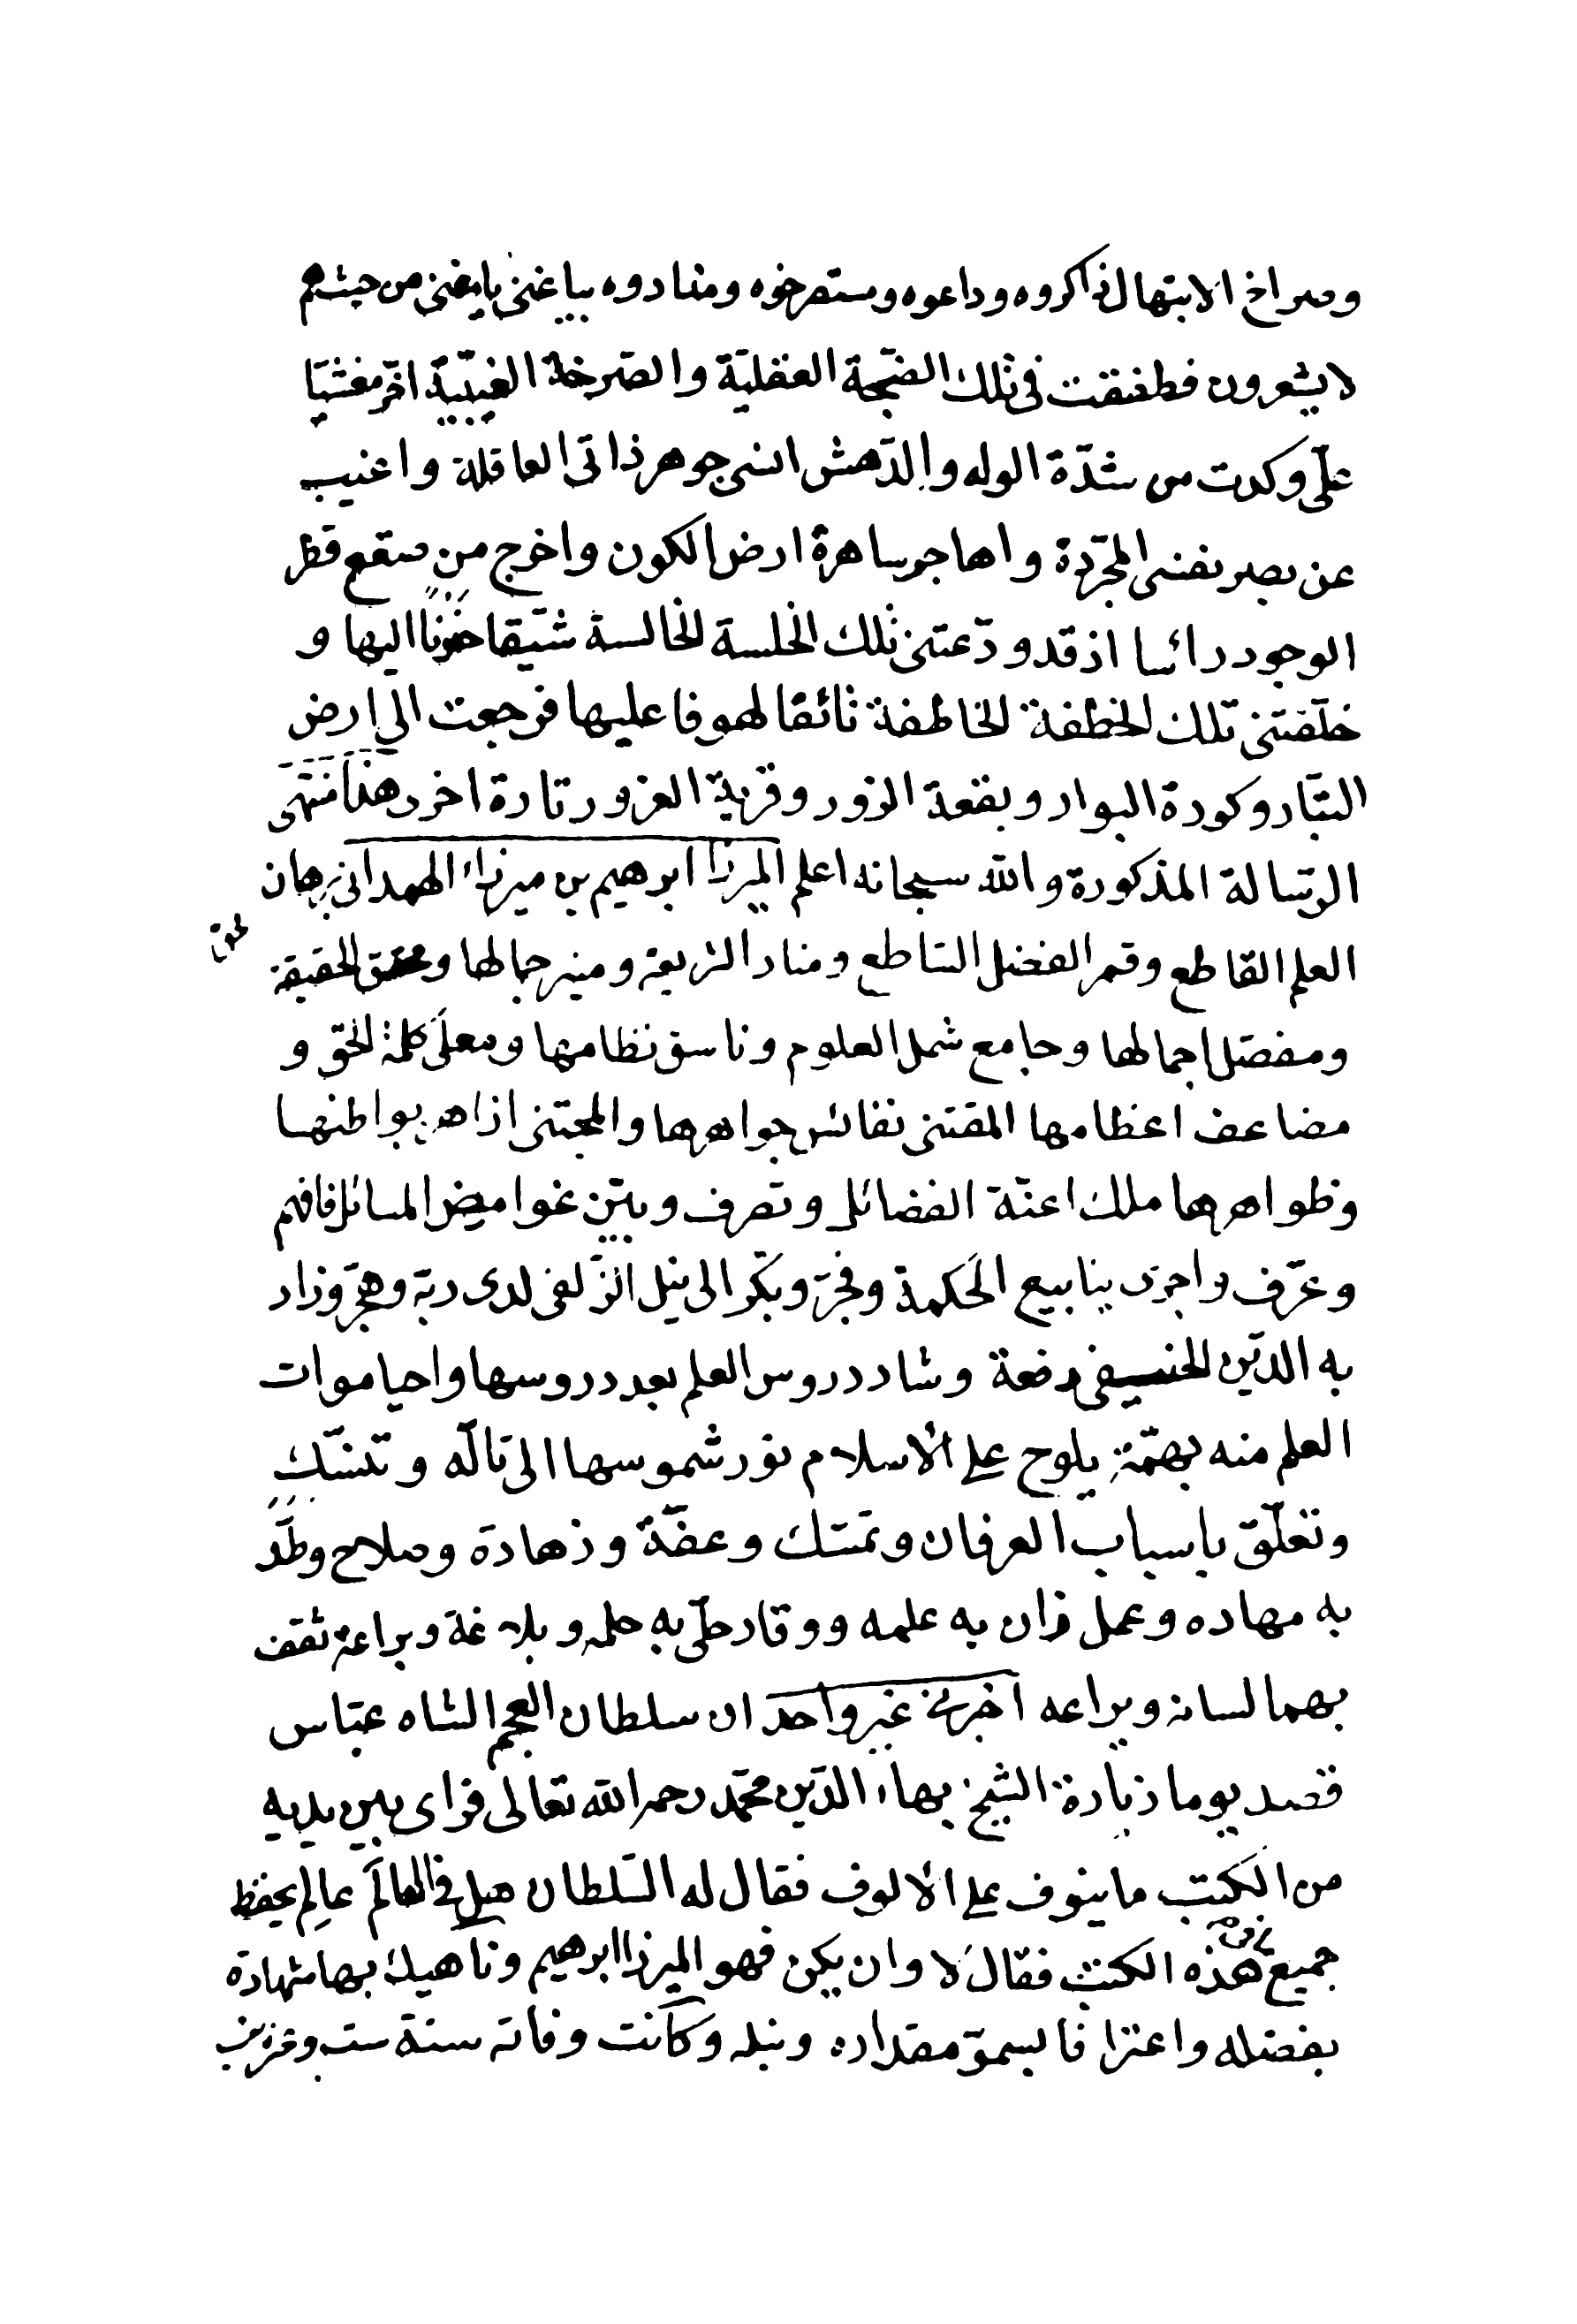 وصراخ الابتهال ذاكروه وداعوه ومستصرخوه ومنادوه بياغنى يا مغنى من حيث هم
لا يشعرون فطفقت فى تلك الضجة العقلية والصرخة الغيبية اخر مغشيا
علّى وكدت من شدّة الوله والدّهش انسى جوهر ذاتى العاقلة واغيب
عن بصر نفسى المجرّدة واهاجر ساهرة ارض الكون واخرج من صقع قطر
الوجود رائسا اذ قد ودّعتنى تلك الخلسة الخالسة شيّقا حنونا اليها و
خلّفتنى تلك الخطفة الخاطفة تائقا لهوفا عليها فرجعت الى ارض
التبّار وكورة البوار وبقعة الزور وقرية الغرور تارة اخرى هذا منتهى
الرّسالة المذكورة والله سبحانه اعلم الميرزا ابرهيم بن ميرزا الهمدانى برهان
العلم القاطع وقمر الفضل السّاطع ومنار الشريعة ومنير جمالها ومحقق الحقيقة
ومفصّل اجمالها وجامع شمل العلوم وناسق نظامها ومعلّى كلمة الحقّ و
مضاعف اعظامها المقتنى نفائس جواهرها والمجتنى ازاهر بواطنها
وظواهرها ملك اعنّة الفضائل وتصرف وبيّن غوامض المسائل فافهم
وعرّف واجرى ينابيع الحكمة وفجّر وبكّر الى نيل الزّلفى لدى ربّه وهجّر وزاد
به الدّين الحنيفى رفعة وشاد دروس العلم بعد دروسها واحيا موات
العلم منه بهمّة يلوح على الاسلام نور شموسها الى تألّه وتنسّك
وتعلّق باسباب العرفان وتمسّك وعفّة وزهادة وصلاح وطّد
به مهاده وعمل زان به علمه ووقار حلّى به حلمه وبلاغة وبراعة ثقف
بهما لسانه ويراعه اخبرنى غير واحد ان سلطان العجم الشاه عبّاس
قصد يوما زيارة الشيخ بهاء الدّين محمّد رحمه الله تعالى فراى بين يديه
من الكتب ما ينوف على الالوف فقال له السّلطان هل فى العالم عالم يحفظ
جميع هذه الكتب فقال لا وان يكن فهو الميرزا ابرهيم وناهيك بها شهادة
بفضله واعترافا بسموّ مقداره ونبله وكانت وفاته سنة ست وعشرين